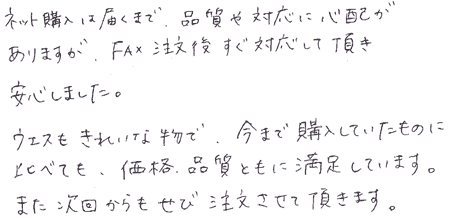 ネット購入は届くまで、品質や対応に心配が
ありますが、FAX注文後すぐ対応して頂き
安心しました。
ウエスもきれいな物で、今まで購入していたものに
比べても、価格、品質ともに満足しています。
また次回からもぜひ注文させて頂きます。